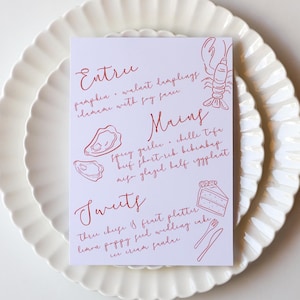 Entree
pumpkin + walnut dumplings
edamame with soy sauce
Mains
spicy garlic + chilli tofu
beef short rib bibimbap
miso glazed half eggplant
Sweets
three cheese & fruit platter
lemon poppy seed wedding cake
ice cream sundae